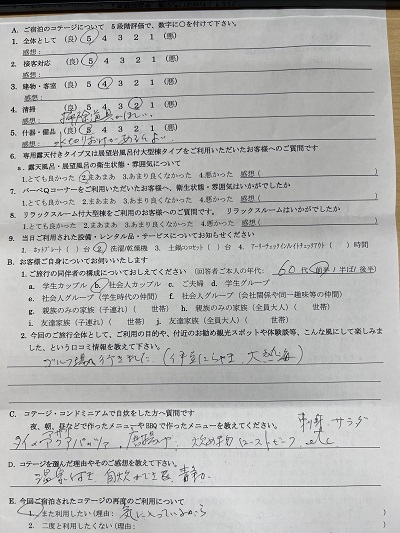 A. ご宿泊のコテージについて 5段階評価で、数字に○を付けて下さい。
1. 全体として (良) 5 4 3 2 1 (悪)
感想:
2. 接客対応 (良) 5 4 3 2 1 (悪)
感想:
3. 建物・客室 (良) 5 4 3 2 1 (悪)
感想:
4. 清掃 (良) 5 4 3 2 1 (悪)
感想: 掃除道具がほしい
5. 什器・備品 (良) 5 4 3 2 1 (悪)
感想: 水切りおけがあるとよい
6. 専用露天付きタイプ又は展望岩風呂付大型棟タイプをご利用いただいたお客様へご質問です
a. 露天風呂・展望風呂の衛生状態・雰囲気について
1.とても良かった 2.まあまあ 3.あまり良くなかった 4.悪かった 感想( )
7. バーベQコーナーをご利用いただいたお客様へ、衛生状態・雰囲気はいかがでしたか
1.とても良かった 2.まあまあ 3.あまり良くなかった 4.悪かった 感想( )
8. リラックスルーム付大型棟をご利用のお客様へのご質問です。 リラックスルームはいかがでしたか
1.とても良かった 2.まあまあ 3.あまり良くなかった 4.悪かった 感想( )
9. 当日ご利用された設備・レンタル品・サービスについてお知らせください
1. ( )台 2. 洗濯/乾燥機 3. 土鍋のセット( )台 4. アーリーチェックイン/レイトチェックアウト( )時間
B. お客様ご自身についてお伺いいたします
1. ご旅行の同伴者の構成についておしえてください (回答者ご本人の年代: 60代 前半/半ば/後半)
a. 学生カップル b. 社会人カップル c. ご夫婦 d. 学生グループ
e. 社会人グループ(学生時代の仲間) f. 社会人グループ(会社関係や同一趣味等の仲間)
g. 親族のみの家族(子連れ)( 世帯) h. 親族のみの家族(全員大人)( 世帯)
i. 友達家族(子連れ)( 世帯) j. 友達家族(全員大人)( 世帯)
2. 今回のご旅行全体として、ご利用の目的や、付近のお勧め観光スポットや体験談等、こんな風にして楽しみました、という口コミ情報を教えて下さい。
C. コテージ・コンドミニアムで自炊をした方へ質問です
夜、朝、昼などで作ったメニューやBBQで作ったメニューを教えてください。 刺身 サラダ
アクアパッツァ 炒め物 ローストビーフ etc
D. コテージを選んだ理由やそのご感想を教えて下さい。
温泉付き 自炊できる 静か
E. 今回ご宿泊されたコテージの再度のご利用について
1. また利用したい(理由: 気に入っているから
2. 二度と利用したくない(理由: